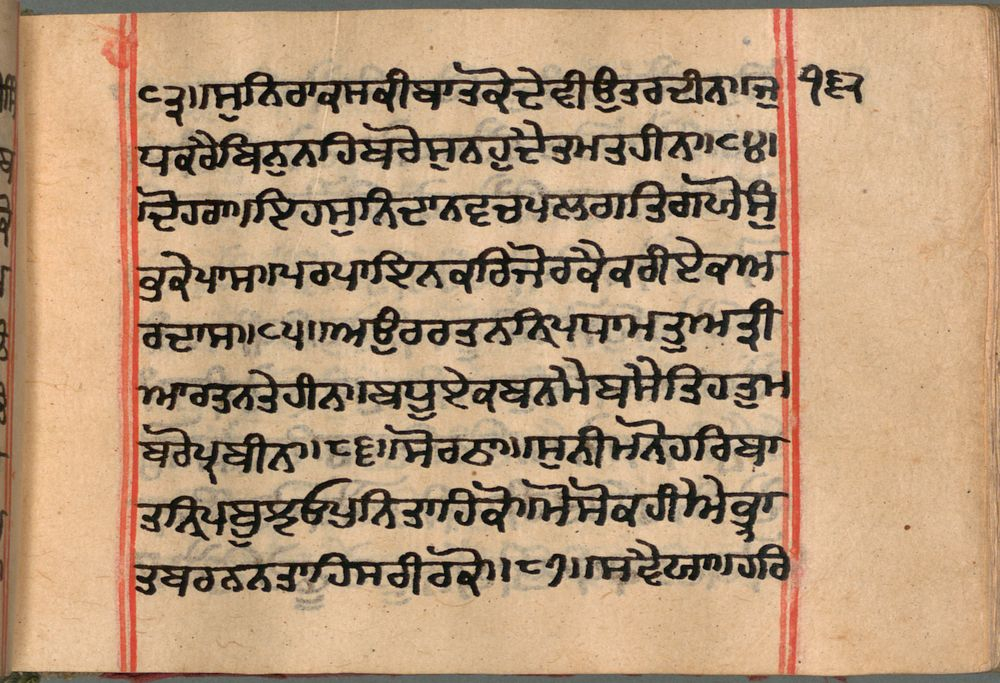 ੮੩॥ਸੁਨਿਰਾਕਸਕੀਬਾਤਕੋਦੇਵੀਉਤਰਦੀਨ॥ਜੁ ੧੬੨
ਧਕਰੈਬਿਨੁਨਹਿਬਰੋਸੁਨਹੁਦੈਤਮਤਹੀਨ॥੮੪॥
ਦੋਹਰਾ॥ਇਹਸੁਨਿਦਾਨਵਚਪਲਗਤਿਗਯੋਸੁੰ
ਭਕੇਪਾਸ॥ਪਰਪਾਇਨਕਰਿਜੋਰਕੈਕਰੀਏਕਅ
ਰਦਾਸ॥੮੫॥ਅਉਰਰਤਨਨ੍ਰਿਪਧਾਮਤੁਅਤ੍ਰੀ
ਆਰਤਨਤੇਹੀਨ॥ਬਧੁਏਕਬਨਮੈਬਸੈਤਿਹਤੁਮ
ਬਰੋਪ੍ਰਬੀਨ॥੮੬॥ਸੋਰਠਾ॥ਸੁਨੀਮਨੋਹਰਿਬਾ
ਤਨ੍ਰਿਪਬੁਝਓਪੁਨਿਤਾਹਿਕੋ॥ਮੋਸੋਕਹੀਐਭ੍ਰਾ
ਤਬਰਨਨਤਾਹਿਸਰੀਰਕੋ॥੮੭॥ਸਵੈਯਾ॥ਹਰਿ